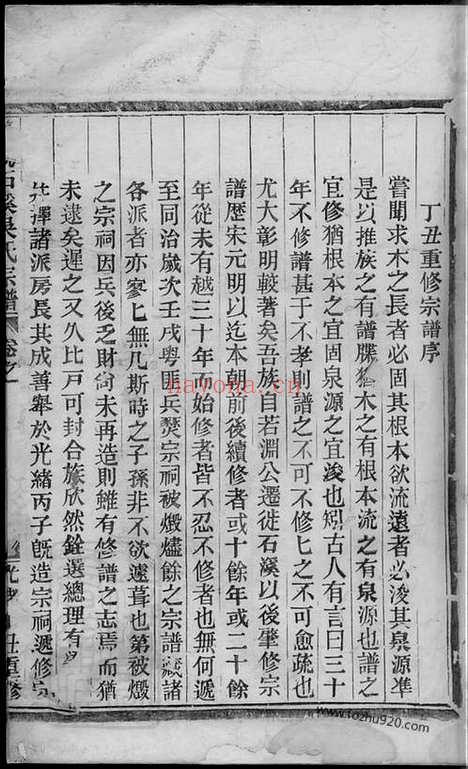 丁丑重修宗譜序
嘗聞求木之長者必固其根本欲流遠者必浚其泉源準
是以推族之有譜牒猶木之有根本流之有泉源也譜之
宜修猶根本之宜固泉源之宜浚也矧古人有言曰三十
年不修譜甚于不孝則譜之不可不修匕之不可愈疏也
尤大彰明較著矣吾族自若淵公遷徙石溪以後肇修宗
譜歷宋元明以迄本朝前後續修者或十餘年或二十餘
年從未有越三十年而始修者皆不忍不修者也無何遞
至同治歲次壬戌粵匪兵燹宗祠被燬燼餘之宗譜藏諸
各派者亦寥匕無几斯時之子孫非不欲遽葺也第被燬
之宗祠因兵後乏財尚未再造則雖有修譜之志焉而猶
未逮矣遲之又久比戸可封合族欣然銓選總理有
共擇諸派房長其成善舉於光緒丙子旣造宗祠遞修宗
石溪吳氏宗譜 卷之
光 丁丑重修
hayona.cn
www.tozhu920.com